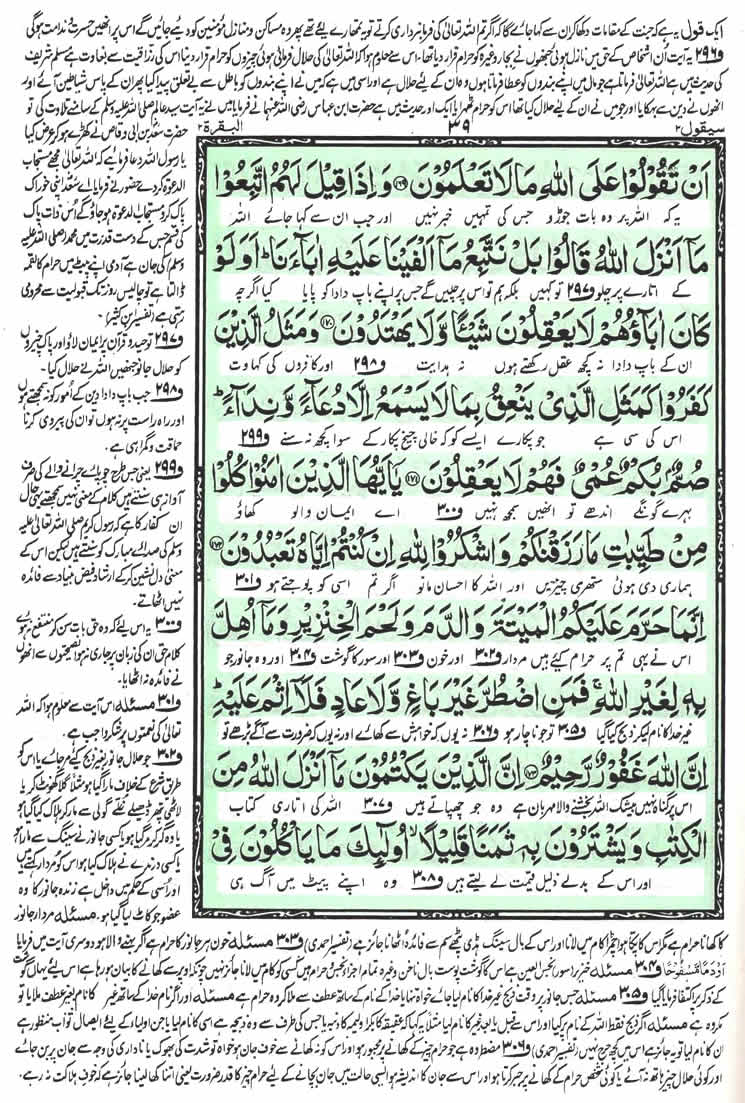 ایک قول یہ ہے کہ جنت کے مقامات دکھا کر ان سے کہا جائے گا کہ اگر تم اللہ تعالیٰ کی فرمانبرداری کرتے تو یہ تمھارے لئے تھے پھر وہ مساکن و منازل مؤمنین کو دیے جائیں گے اس پر انھیں حسرت و ندامت ہوگی
و۲۹۶ یہ آیت ان اشخاص کے حق میں نازل ہوئی جنھوں نے بجار وغیرہ کو حرام قرار دیا تھا۔ اس سے معلوم ہوا کہ اللہ تعالیٰ کی حلال فرمائی ہوئی چیزوں کو حرام قرار دینا اس کی رزاقیت سے بغاوت ہے مسلم شریف
کی حدیث میں ہے اللہ تعالیٰ فرماتا ہے جو مال میں اپنے بندوں کو عطا فرماتا ہوں وہ ان کے لئے حلال ہے اور اسی میں ہے کہ میں نے اپنے بندوں کو باطل سے بے تعلق پیدا کیا پھر ان کے پاس شیاطین آئے اور
انھوں نے دین سے بہکایا اور جو میں نے ان کے لئے حلال کیا تھا اس کو حرام ٹھہرایا ایک اور حدیث میں ہے حضرت ابن عباس رضی اللہ عنہما نے فرمایا میں نے یہ آیت سید عالم صلی اللہ علیہ وسلم کے سامنے تلاوت کی تو
سیقول ۲
۳۹
البقرة ۲
اَنْ تَقُوْلُوْا عَلَى اللّٰهِ مَا لَا تَعْلَمُوْنَ ۝۱۶۹ وَ اِذَا قِیْلَ لَهُمُ اتَّبِعُوْا
یہ کہ اللہ پر وہ بات جوڑو جس کی تمہیں خبر نہیں اور جب ان سے کہا جائے اللہ
مَاۤ اَنْزَلَ اللّٰهُ قَالُوْا بَلْ نَتَّبِعُ مَاۤ اَلْفَیْنَا عَلَیْهِ اٰبَآءَنَا ؕ اَوَ لَوْ
کے اتارے پر چلو و۲۹۷ تو کہیں بلکہ ہم تو اس پر چلیں گے جس پر اپنے باپ دادا کو پایا کیا اگرچہ
كَانَ اٰبَآؤُهُمْ لَا یَعْقِلُوْنَ شَیْـًٔا وَّ لَا یَهْتَدُوْنَ ۝۱۷۰ وَ مَثَلُ الَّذِیْنَ
ان کے باپ دادا نہ کچھ عقل رکھتے ہوں نہ ہدایت و۲۹۸ اور کافروں کی کہاوت
كَفَرُوْا كَمَثَلِ الَّذِیْ یَنْعِقُ بِمَا لَا یَسْمَعُ اِلَّا دُعَآءً وَّ نِدَآءً ؕ
اس کی سی ہے جو پکارے ایسے کو کہ خالی چیخ پکار کے سوا کچھ نہ سنے و۲۹۹
صُمٌّۢ بُكْمٌ عُمْیٌ فَهُمْ لَا یَعْقِلُوْنَ ۝۱۷۱ یٰۤاَیُّهَا الَّذِیْنَ اٰمَنُوْا كُلُوْا
بہرے گونگے اندھے تو انھیں سمجھ نہیں و۳۰۰ اے ایمان والو کھاؤ
مِنْ طَیِّبٰتِ مَا رَزَقْنٰكُمْ وَ اشْكُرُوْا لِلّٰهِ اِنْ كُنْتُمْ اِیَّاهُ تَعْبُدُوْنَ ۝۱۷۲
ہماری دی ہوئی ستھری چیزیں اور اللہ کا احسان مانو اگر تم اسی کو پوجتے ہو و۳۰۱
اِنَّمَا حَرَّمَ عَلَیْكُمُ الْمَیْتَةَ وَ الدَّمَ وَ لَحْمَ الْخِنْزِیْرِ وَ مَاۤ اُهِلَّ
اس نے یہی تم پر حرام کیئے ہیں مردار و۳۰۲ اور خون و۳۰۳ اور سور کا گوشت و۳۰۴ اور وہ جانور جو
بِهٖ لِغَیْرِ اللّٰهِ ۚ فَمَنِ اضْطُرَّ غَیْرَ بَاغٍ وَّ لَا عَادٍ فَلَاۤ اِثْمَ عَلَیْهِ ؕ
غیر خدا کا نام لیکر ذبح کیا گیا و۳۰۵ تو جو ناچار ہو و۳۰۶ نہ یوں کہ خواہش سے کھائے اور نہ یوں کہ ضرورت سے آگے بڑھے تو
اِنَّ اللّٰهَ غَفُوْرٌ رَّحِیْمٌ ۝۱۷۳ اِنَّ الَّذِیْنَ یَكْتُمُوْنَ مَاۤ اَنْزَلَ اللّٰهُ مِنَ
اس پر گناہ نہیں بیشک اللہ بخشنے والا مہربان ہے وہ جو چھپاتے ہیں و۳۰۷ اللہ کی اتاری کتاب
الْكِتٰبِ وَ یَشْتَرُوْنَ بِهٖ ثَمَنًا قَلِیْلًا ۙ اُولٰٓىِٕكَ مَا یَاْكُلُوْنَ فِیْ
اور اس کے بدلے ذلیل قیمت لے لیتے ہیں و۳۰۸ وہ اپنے پیٹ میں آگ ہی
حضرت سعد بن ابی وقاص نے کھڑے ہو کر عرض کیا
یا رسول اللہ دعا فرمائیے کہ اللہ تعالیٰ مجھے مستجاب
الدعوۃ کر دے حضور نے فرمایا اے سعد اپنی خوراک
پاک کرو مستجاب الدعوۃ ہو جاؤ گے اس ذات پاک
کی قسم جس کے دست قدرت میں محمد صلی اللہ علیہ
وسلم کی جان ہے آدمی اپنے پیٹ میں حرام کا لقمہ
ڈالتا ہے تو چالیس روز تک قبولیت سے محرومی
رہتی ہے (تفسیر ابن کثیر)
و۲۹۷ توحید و قرآن پر ایمان لاؤ اور پاک چیزوں
کو حلال جانو جنھیں اللہ نے حلال کیا۔
و۲۹۸ جب باپ دادا دین کے امور کو نہ سمجھتے ہوں
اور راہ راست پر نہ ہوں تو ان کی پیروی کرنا
حماقت و گمراہی ہے۔
و۲۹۹ یعنی جس طرح چوپائے چرانے والے کی صرف
آواز ہی سنتے ہیں کلام کے معنی نہیں سمجھتے یہی حال
ان کفار کا ہے کہ رسول کریم صلی اللہ تعالیٰ علیہ
وسلم کی صدائے مبارک کو سنتے ہیں لیکن اس کے
معنی دل نشین کر کے ارشاد فیض بنیاد سے فائدہ
نہیں اٹھاتے۔
و۳۰۰ یہ اس لیے کہ وہ حق بات سن کر منتفع نہ ہوئے
کلام حق ان کی زبان پر جاری نہ ہوا نصیحتوں سے انھوں
نے فائدہ نہ اٹھایا۔
و۳۰۱ مسئلہ اس آیت سے معلوم ہوا کہ اللہ
تعالیٰ کی نعمتوں پر شکر واجب ہے۔
و۳۰۲ جو حلال جانور بغیر ذبح کیئے مر جائے یا اس کو
طریق شرع کے خلاف مارا گیا ہو مثلاً گلا گھونٹ کر یا
لاٹھی پتھر ڈھیلے غلے گولی سے مار کر ہلاک کیا گیا ہو
یا وہ گر کر مر گیا ہو یا کسی جانور نے سینگ سے مارا ہو
یا کسی درندے نے ہلاک کیا ہو اس کو مردار کہتے ہیں
اور اسی کے حکم میں داخل ہے زندہ جانور کا وہ
عضو جو کاٹ لیا گیا ہو۔ مسئلہ مردار جانور
کا کھانا حرام ہے مگر اس کا پکا ہوا چمڑا کام میں لانا اور اس کے بال سینگ ہڈی پٹھے سم سے فائدہ اٹھانا جائز ہے (تفسیر احمدی) و۳۰۳ مسئلہ خون ہر جانور کا حرام ہے اگر بہنے والا ہو دوسری آیت میں فرمایا
اَوْ دَمًا مَّسْفُوْحًا و۳۰۴ مسئلہ خنزیر (سور) نجس العین ہے اس کا گوشت پوست بال ناخن وغیرہ تمام اجزاء نجس و حرام ہیں کسی کو کام میں لانا جائز نہیں چونکہ اوپر سے کھانے کا بیان ہو رہا ہے اس لیے یہاں گوشت
کے ذکر پر اکتفا فرمایا گیا و۳۰۵ مسئلہ جس جانور پر وقت ذبح غیر خدا کا نام لیا جائے خواہ تنہا یا خدا کے نام کے ساتھ عطف سے ملا کر وہ حرام ہے مسئلہ اور اگر نام خدا کے ساتھ غیر کا نام بغیر عطف ملایا تو
مکروہ ہے مسئلہ اگر ذبح فقط اللہ کے نام پر کیا اور اس سے قبل یا بعد غیر کا نام لیا مثلاً یہ کہا کہ عقیقہ کا بکرا ولیمہ کا دنبہ یا جس کی طرف سے وہ ذبیحہ ہے اسی کا نام لیا یا جن اولیاء کے لئے ایصال ثواب منظور ہے
ان کا نام لیا تو یہ جائز ہے اس میں کچھ حرج نہیں (تفسیر احمدی) و۳۰۶ مضطر وہ ہے جو حرام چیز کے کھانے پر مجبور ہو اور اس کو نہ کھانے سے خوف جان ہو خواہ تو شدت کی بھوک یا ناداری کی وجہ سے جان پر بن جائے
اور کوئی حلال چیز ہاتھ نہ آئے یا کوئی شخص حرام کے کھانے پر جبر کرتا ہو اور اس سے جان کا اندیشہ ہو ایسی حالت میں جان بچانے کے لیے حرام چیز کا قدر ضرورت یعنی اتنا کھا لینا جائز ہے کہ خوف ہلاکت نہ رہے۔